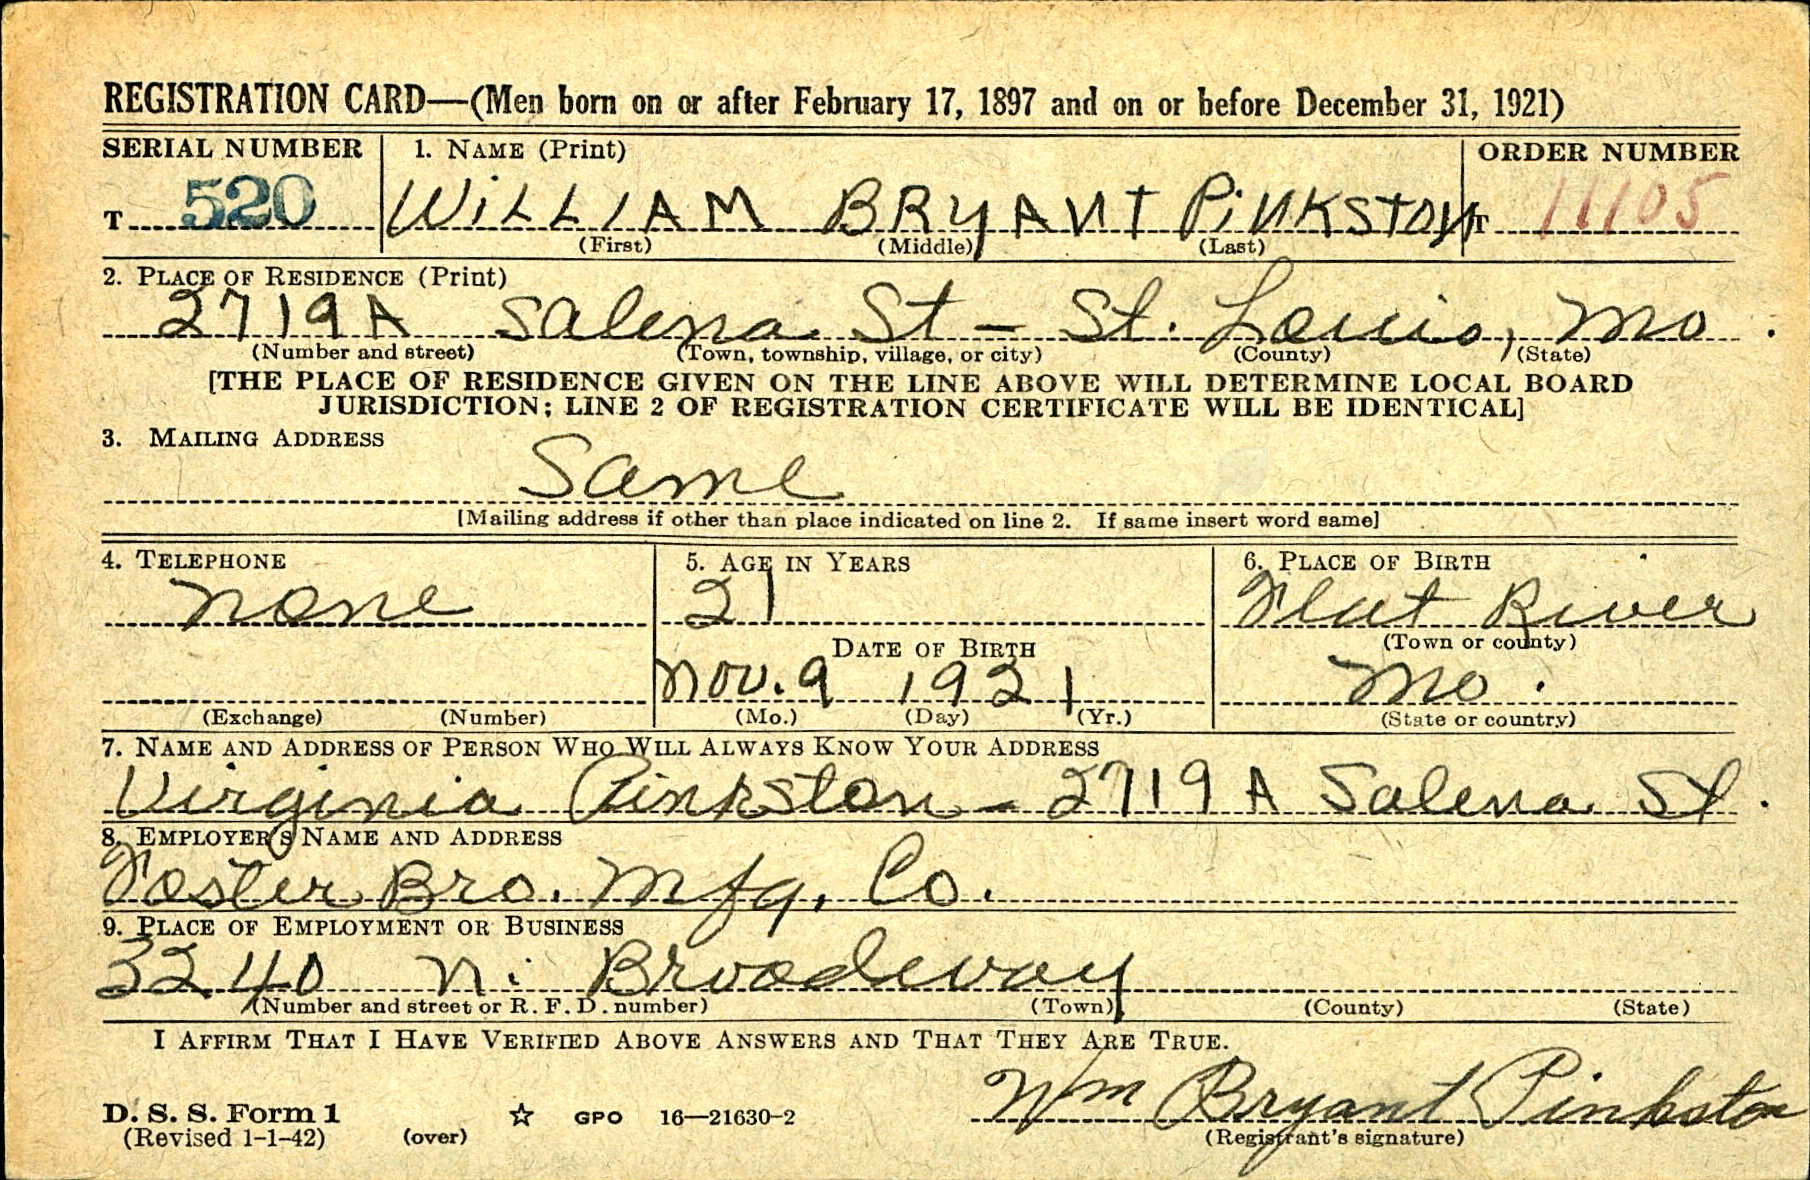 REGISTRATION CARD—(Men born on or after February 17, 1897 and on or before December 31, 1921)
SERIAL NUMBER 1. NAME (Print) ORDER NUMBER
T 520 WILLIAM BRYANT PINKSTON T 11105
(First) (Middle) (Last)
2. PLACE OF RESIDENCE (Print)
2719A Salena St - St. Louis, Mo.
(Number and street) (Town, township, village, or city) (County) (State)
[THE PLACE OF RESIDENCE GIVEN ON THE LINE ABOVE WILL DETERMINE LOCAL BOARD
JURISDICTION; LINE 2 OF REGISTRATION CERTIFICATE WILL BE IDENTICAL]
3. MAILING ADDRESS
Same
[Mailing address if other than place indicated on line 2. If same insert word same]
4. TELEPHONE 5. AGE IN YEARS 6. PLACE OF BIRTH
None 21 Flat River
DATE OF BIRTH (Town or county)
Nov. 9 1921 Mo.
(Exchange) (Number) (Mo.) (Day) (Yr.) (State or country)
7. NAME AND ADDRESS OF PERSON WHO WILL ALWAYS KNOW YOUR ADDRESS
Virginia Pinkston - 2719A Salena St.
8. EMPLOYER'S NAME AND ADDRESS
Foster Bro. Mfg. Co.
9. PLACE OF EMPLOYMENT OR BUSINESS
3240 N. Broadway
(Number and street or R. F. D. number) (Town) (County) (State)
I AFFIRM THAT I HAVE VERIFIED ABOVE ANSWERS AND THAT THEY ARE TRUE.
Wm Bryant Pinkston
D. S. S. Form 1 ☆ GPO 16—21630-2
(Revised 1-1-42) (over) (Registrant's signature)